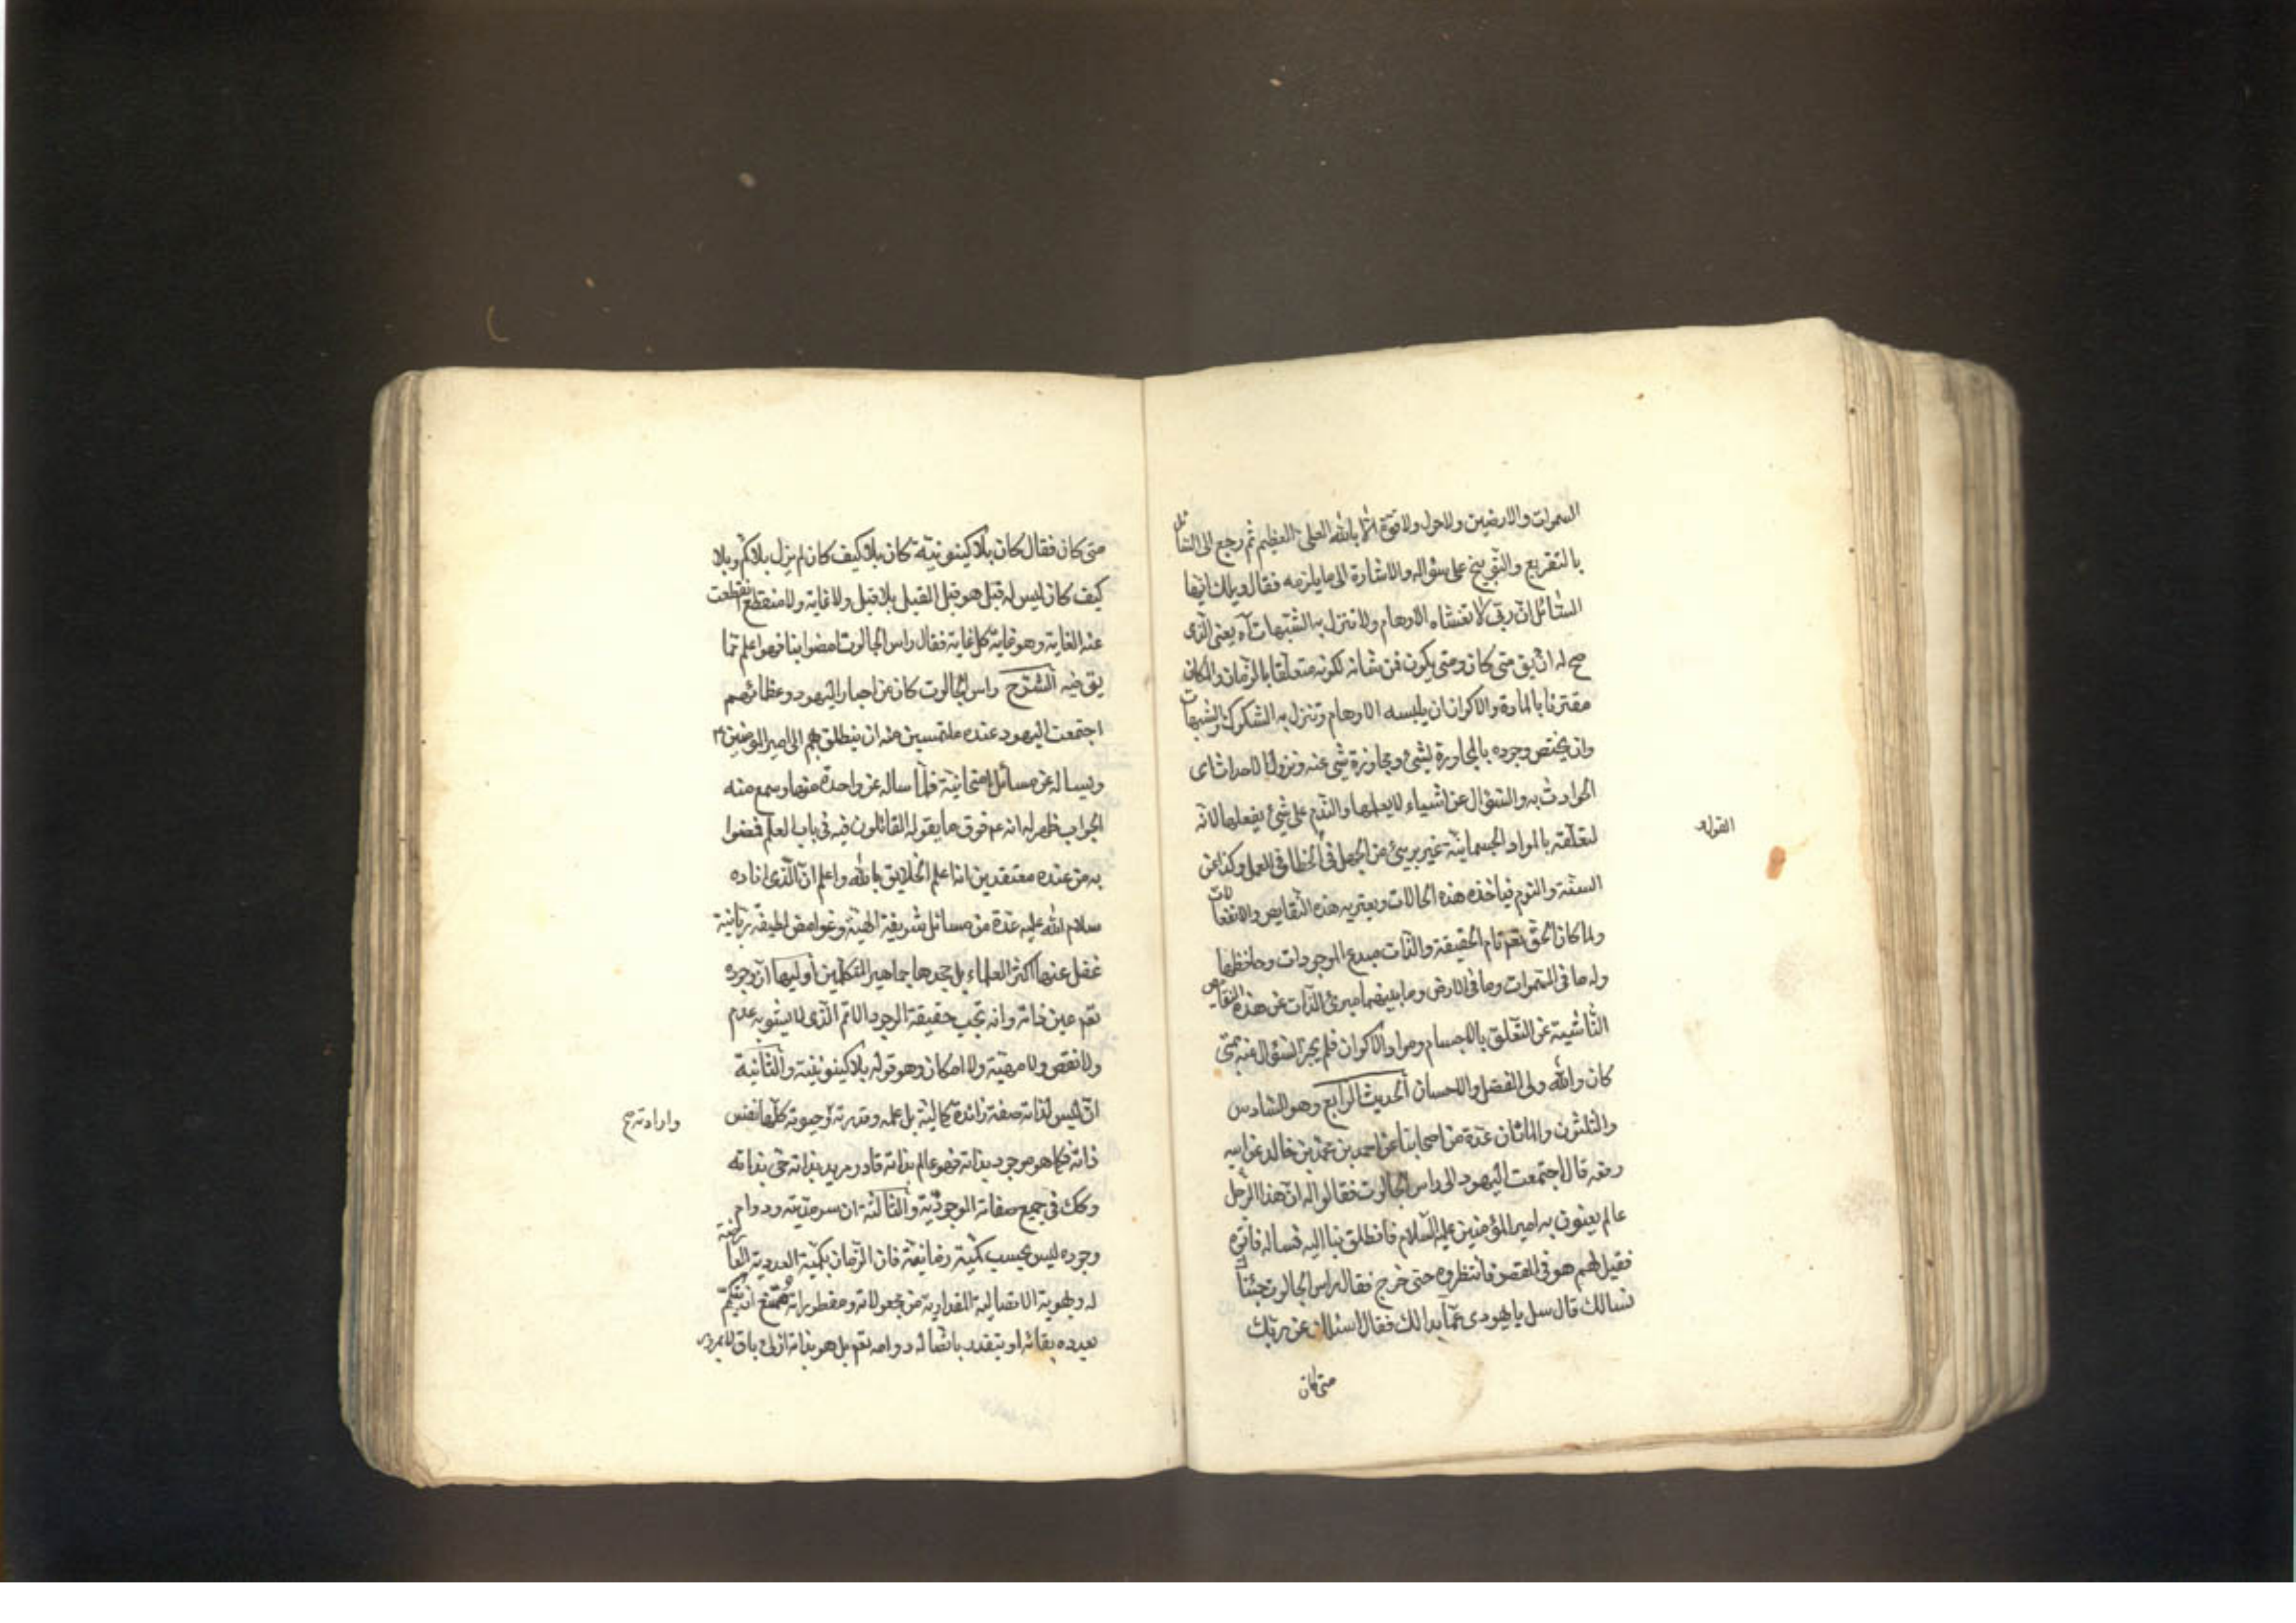 السموات والارضين ولاحول ولاقوة الا بالله العلى العظيم ثم رجع الى السائل
بالتقريع والتوبيخ على سؤاله والاشارة الى ما يلزمه فقال ويلك ايها
السائل ان ربى لا تغشاه الاوهام ولا تنزل به الشبهات آه يعنى الذى
صح له ان يق متى كان ومتى يكون فمن شانه لكونه متعلقا بالزمان والمكان
مقترنا بالمادة والاكوان ان يلبسه الاوهام وتنزل به الشكوك والشبهات
وان يختص وجوده بالمجاورة لشئ ومجاوزة شئ عنه ونزول الاحداث اى
الحوادث به والسؤال عن اشياء لا يعلمها والندم على شئ يفعلها لانه
لتعلقه بالمواد الجسمانية غير برىء من الجهل فى الخطا فى العمل وكذا عن
السنة والنوم فياخذه هذه الحالات ويعتريه هذه النقايص والانفعالات
ولما كان الحق تعم تام الحقيقة والذات مبدع الموجودات وحافظها
وله ما فى السموات وما فى الارض وما بينهما مبرئ الذات عن هذه النقايص
الناشية عن التعلق بالاجسام ومواد الاكوان فلم يجز السؤال عنه بمتى
كان والله ولى الفضل والاحسان الحديث الرابع وهو السادس
والثلثون والمائتان عدة من اصحابنا عن احمد بن محمد بن خالد عن ابيه
رفعه قال اجتمعت اليهود الى راس الجالوت فقالوا له ان هذا الرجل
عالم يعنون به امير المؤمنين عليه السلام فانطلق بنا اليه نساله فاتوه
فقيل لهم هو فى القصر فانتظروه حتى خرج فقال راس الجالوت جئنا
نسالك قال سل يا يهودى عما بدا لك فقال اسئلك عن ربك
متى كان
متى كان فقال كان بلا كينونية كان بلا كيف كان لم يزل بلا كم وبلا
كيف كان ليس له قبل هو قبل القبل بلا قبل ولا غاية ولا منقطع انقطعت
عنه الغاية وهو غاية كل غاية فقال راس الجالوت امضوا بنا فهو اعلم مما
يق فيه الشرح راس الجالوت كان من احبار اليهود وعظمائهم
اجتمعت اليهود عنده ملتمسين منه ان ينطلق بهم الى امير المؤمنين
ويساله عن مسائل امتحانية فلما ساله عن واحدة منها وسمع منه
الجواب ظهر له انه عم فوق ما يقوله القائلون فيه فى باب العلم فمضوا
به من عنده معتقدين انه اعلم الخلايق بالله واعلم ان الذى افاده
سلام الله عليه عدة من مسائل شريفة الهية وغوامض لطيفة ربانية
غفل عنها اكثر العلماء بل جحدها جماهير المتكلمين اوليها ان وجوده
تعم عين ذاته وانه بحت حقيقة الوجود الاتم الذى لا يشوبه عدم
ولا نقص ولا مهية ولا امكان وهو قوله بلا كينونية والثانية
ان ليس لذاته صفة زائدة كمالية بل علمه وقدرته وحيوته كلها نفس
واراد ته صح
ذاته فكما هو موجود بذاته فهو عالم بذاته قادر مريد بذاته حى بذاته
وكك فى جميع صفاته الوجودية والثالثة ان سرمديته ودوام
وجوده ليس بحسب كمية زمانية فان الزمان بكميته العددية العارضة
له وبهويته الاتصالية المقدارية من مجعولاته ومفطوراته فممتنع ان يتكمم
بعدده بقائه او يتقدر باتصاله دوامه تعم بل هو بذاته ازلى باق